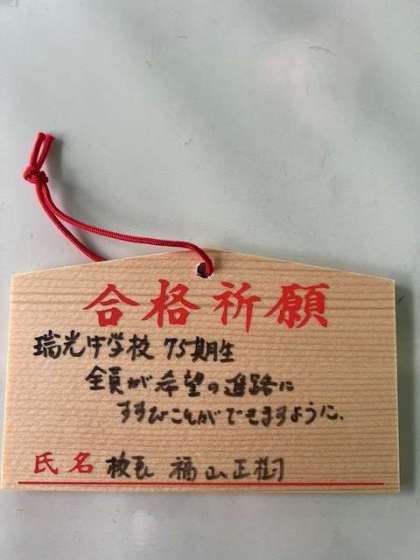 合格祈願
瑞光中学校 75期生
全員が希望の進路に
すすむことができますように、
氏名 校長 福山正樹